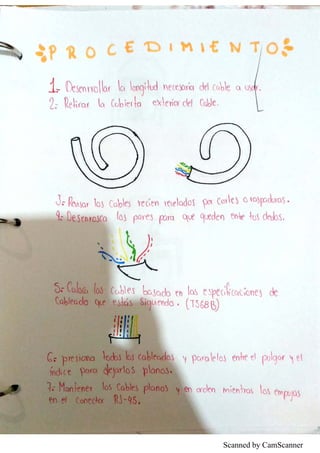 PROCEDIMIENTO
1.- Desenrollar la longitud necesaria del cable a usar.
2.- Retirar la cubierta exterior del cable.
3.- Revisar los cables recien revelados por cortes o raspaduras.
4.- Desenrosca los pares para que queden entre tus dedos.
5.- Coloca los cables basado en las especificaciones de
cableado que estás siguiendo. (T568B)
6.- presiona todos los cableados y paralelos entre el pulgar y el
índice para dejarlos planos.
7.- Mantener los cables planos y en orden mientras los empujas
en el conector RJ-45.
Scanned by CamScanner